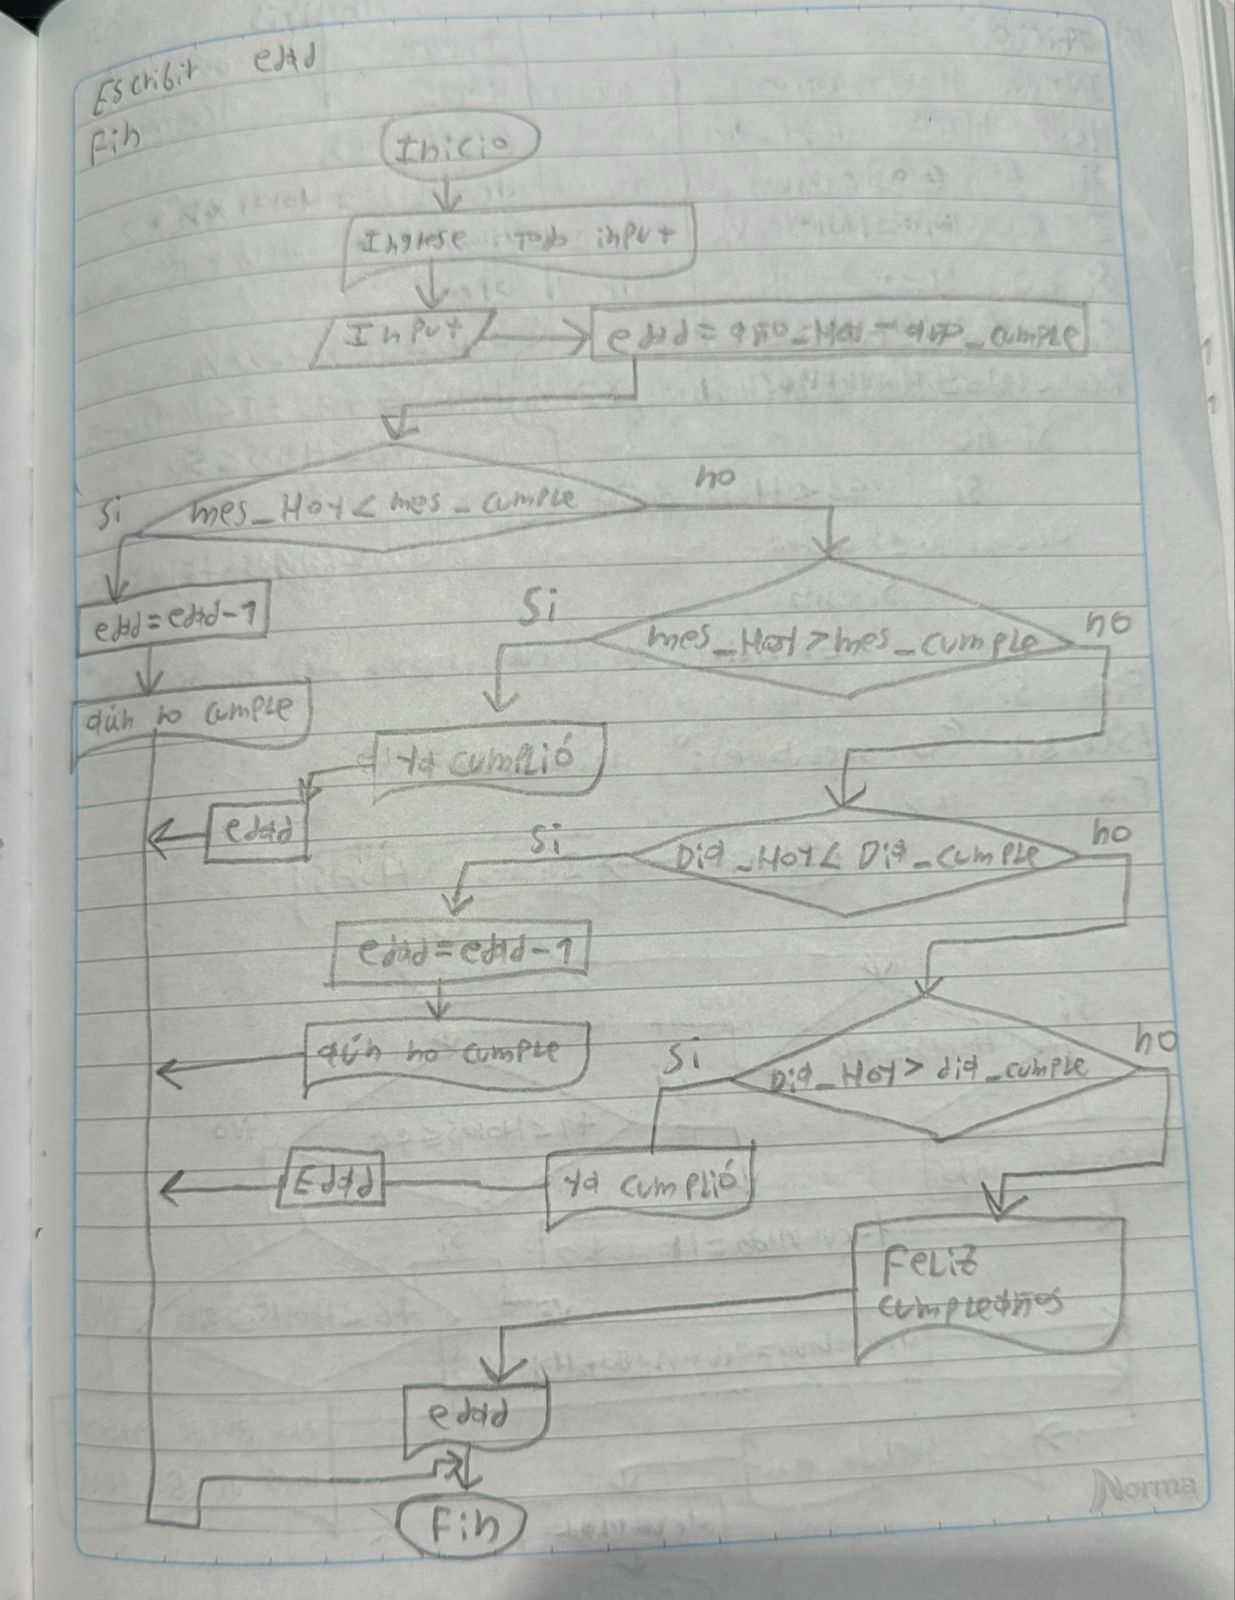 Escribir edad
Fin
Inicio
Ingrese todo input
Input
edad = año_Hoy - año_cumple
mes_Hoy < mes_cumple
Si
no
edad = edad - 1
aún no cumple
mes_Hoy > mes_cumple
Si
no
Ya cumplió
edad
Dia_Hoy < Dia_cumple
Si
no
edad = edad - 1
aún no cumple
Dia_Hoy > dia_cumple
Si
no
Ya cumplió
Edad
Feliz
cumpleaños
edad
Fin
Norma